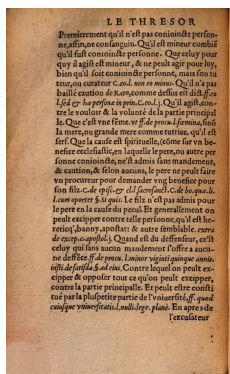 LE THRESOR
Premierement qu'il n'est pas conioincte person-
ne, affin, ne consanguin. Qu'il est mineur combiẽ
qu'il fust conioincte personne. Que celuy pour
quy il agist est mineur, & ne peult agir pour luy,
bien qu'il soit conioincte personne, mais son tu
teur, ou curateur C. eo. l. non eo minus. Qu'il n'a pas
baillé caution de Rato, comme dessus est dit. ff. eo
l. sed & hæ personæ in prin. C. eo. l. j. Qu'il agist, con-
tre le vouloir & la volunté de la partie principal
le. Que c'est vne fẽme. vt ff. de procu. l. fœmina, sinõ
la mere, ou grande mere comme tutrice. qu'il est
serf. Que la cause est spirituelle, (cõme sur vn be-
nefice ecclesiastic, en laquelle le pere, ou autre per
sonne conioincte, n'est admis sans mandement,
& caution, & selon aucuns, le pere ne peult faire
vn procureur pour demander vng benefice pour
son filz. C. de episc. & cl. l. sacrosanct. C. de bo. quæ. li.
l. cum oportet §. Si quis. Le filz n'est pas admis pour
le pere en la cause du pecul. Et generallement on
peult excipper contre telle personne, qu'il est he-
retiq', banny, apostat: & autre semblable. extra
de excep. c. apostol. j. Quand est du deffenseur, c'est
celuy qui sans aucun mandement s'offre à aucu-
ne deffẽce. ff. de procu. l. minor viginti quinque annis.
insti. de satisda. §. ad eius. Contre lequel on peult ex-
cipper & opposer tout ce qu'on peult excipper,
contre la partie principalle. Et peult estre consti
tué par la plus petite partie de l'vniuersité, ff. quod
cuiusque vniuersitatis. l. nulli. lege. planè. En apres de
l'excusateur